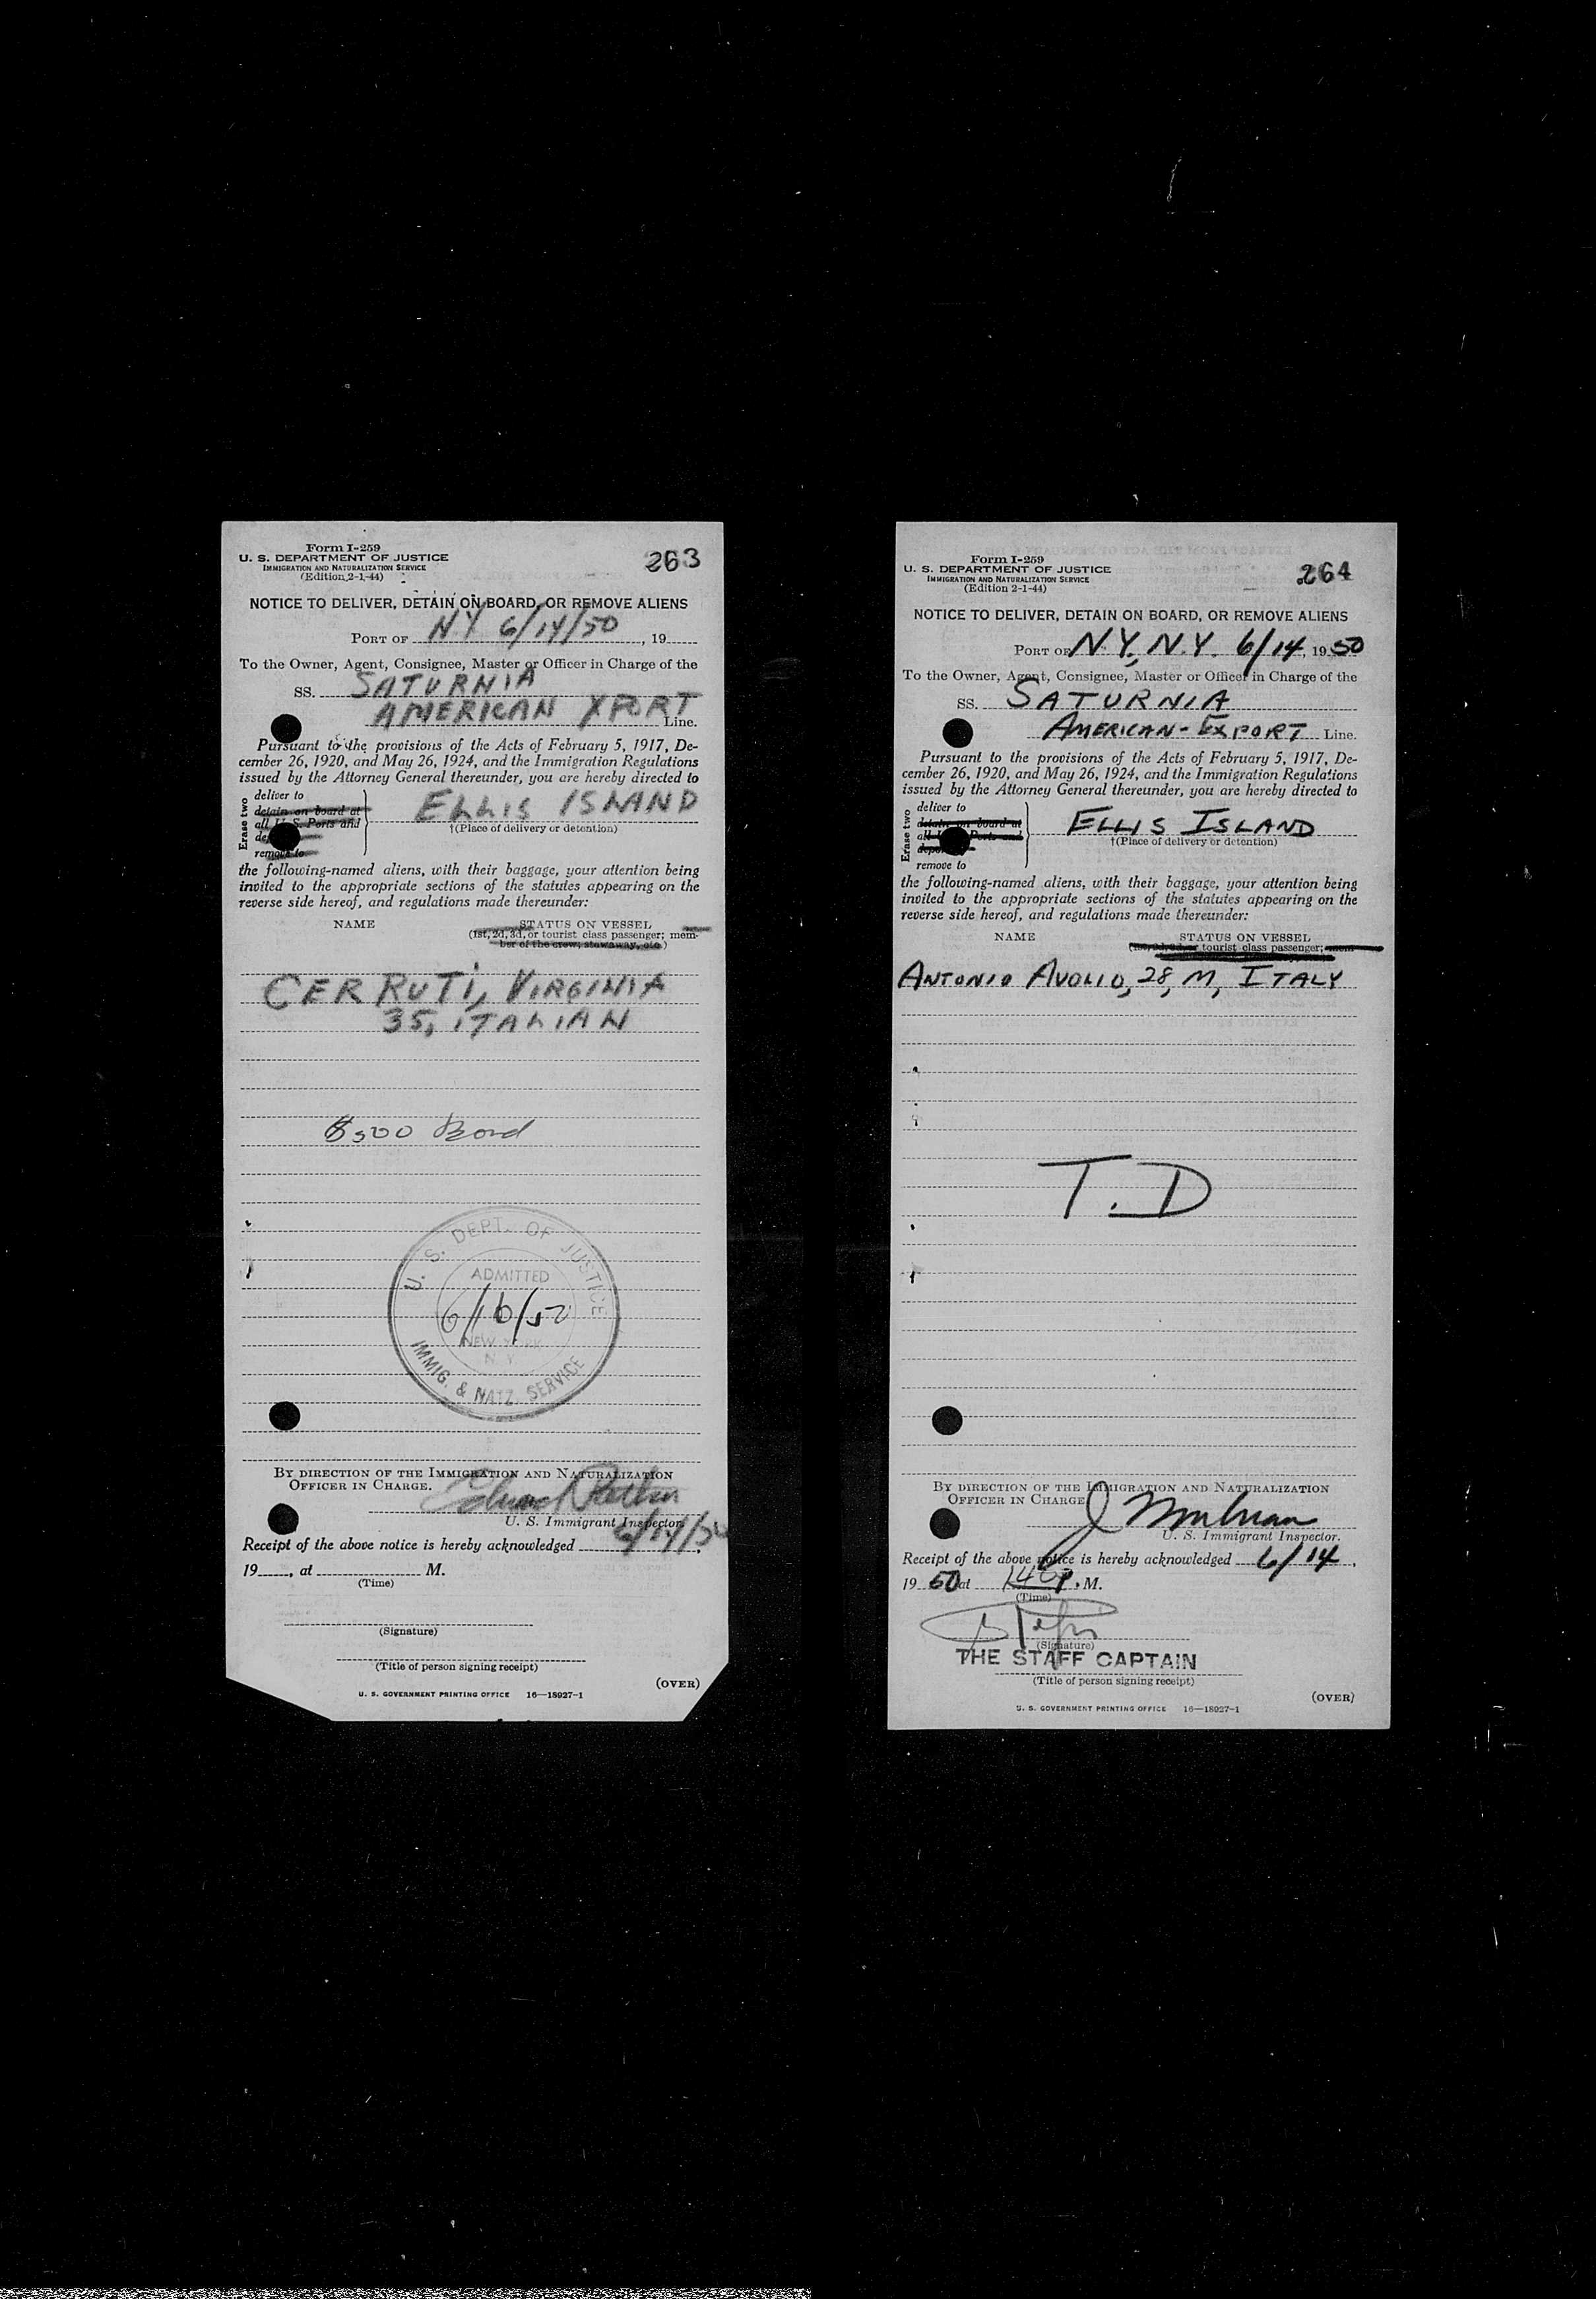 Form I-259
U. S. DEPARTMENT OF JUSTICE
IMMIGRATION AND NATURALIZATION SERVICE
(Edition 2-1-44)
263
NOTICE TO DELIVER, DETAIN ON BOARD, OR REMOVE ALIENS
PORT OF NY 6/14/50, 19
To the Owner, Agent, Consignee, Master or Officer in Charge of the
SS. SATURNIA
AMERICAN XPORT Line.
Pursuant to the provisions of the Acts of February 5, 1917, De-
cember 26, 1920, and May 26, 1924, and the Immigration Regulations
issued by the Attorney General thereunder, you are hereby directed to
Erase two
deliver to
detain on board at
all U. S. Ports and
remove to
ELLIS ISLAND
†(Place of delivery or detention)
the following-named aliens, with their baggage, your attention being
invited to the appropriate sections of the statutes appearing on the
reverse side hereof, and regulations made thereunder:
NAME STATUS ON VESSEL
(1st, 2d, 3d, or tourist class passenger; mem-
ber of the crew; stowaway, etc.)
CERRUTI, VIRGINIA
35, ITALIAN
$500 Bond
U. S. DEPT. OF JUSTICE
ADMITTED
6/16/50
NEW YORK
N Y
IMMIG. & NATZ. SERVICE
BY DIRECTION OF THE IMMIGRATION AND NATURALIZATION
OFFICER IN CHARGE.
U. S. Immigrant Inspector.
Receipt of the above notice is hereby acknowledged 6/14/50,
19, at M.
(Time)
(Signature)
(Title of person signing receipt)
(OVER)
U. S. GOVERNMENT PRINTING OFFICE 16—18927-1
Form I-259
U. S. DEPARTMENT OF JUSTICE
IMMIGRATION AND NATURALIZATION SERVICE
(Edition 2-1-44)
264
NOTICE TO DELIVER, DETAIN ON BOARD, OR REMOVE ALIENS
PORT OF N.Y., N.Y. 6/14, 1950
To the Owner, Agent, Consignee, Master or Officer in Charge of the
SS. SATURNIA
AMERICAN-EXPORT Line.
Pursuant to the provisions of the Acts of February 5, 1917, De-
cember 26, 1920, and May 26, 1924, and the Immigration Regulations
issued by the Attorney General thereunder, you are hereby directed to
Erase two
deliver to
detain on board at
Ports and
remove to
ELLIS ISLAND
†(Place of delivery or detention)
the following-named aliens, with their baggage, your attention being
invited to the appropriate sections of the statutes appearing on the
reverse side hereof, and regulations made thereunder:
NAME STATUS ON VESSEL
tourist class passenger; mem-
ANTONIO AVOLIO, 28, M, ITALY
T.D
BY DIRECTION OF THE IMMIGRATION AND NATURALIZATION
OFFICER IN CHARGE
U. S. Immigrant Inspector.
Receipt of the above notice is hereby acknowledged 6/14,
1950 at P. M.
(Time)
(Signature)
THE STAFF CAPTAIN
(Title of person signing receipt)
(OVER)
U. S. GOVERNMENT PRINTING OFFICE 16—18927-1